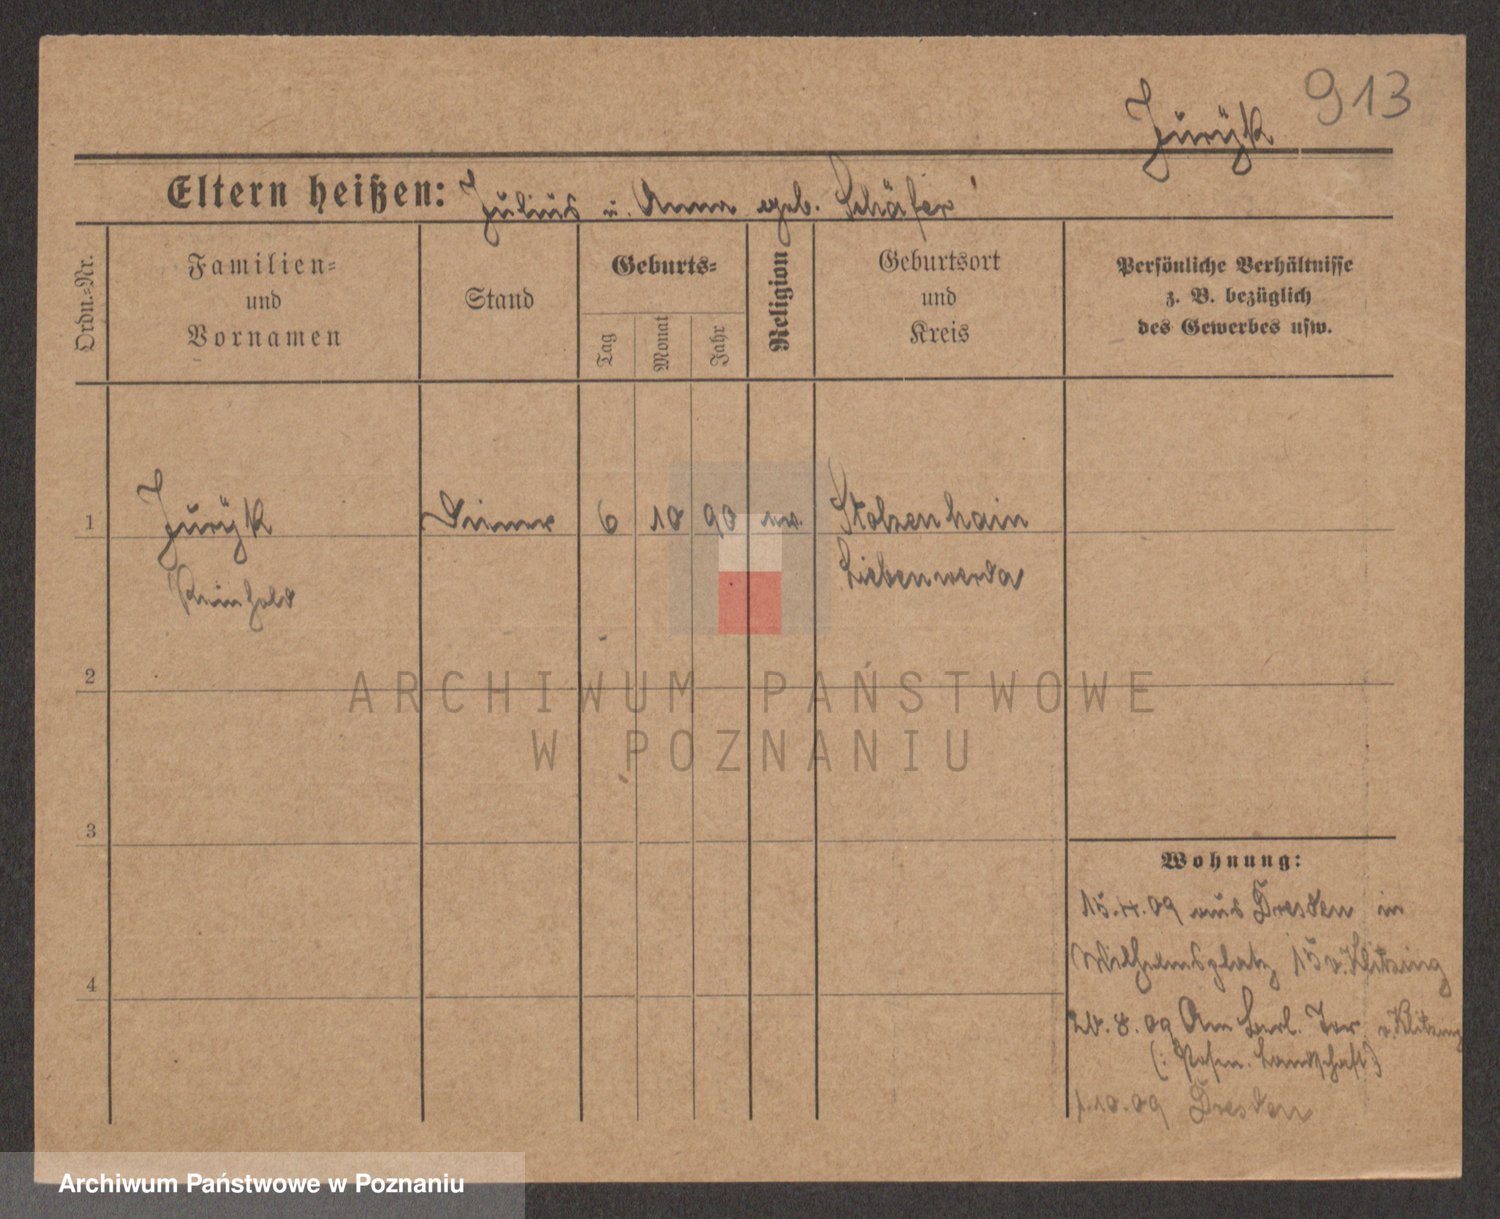 913
Juryk
Eltern heißen: Julius u. Anna geb. Schäfer
Ordn.=Nr.
Familien=
und
Vornamen
Stand
Geburts=
Tag
Monat
Jahr
Religion
Geburtsort
und
Kreis
Persönliche Verhältnisse
z. B. bezüglich
des Gewerbes usw.
1
Juryk Diener 6 10 90 ev. Stolzenhain
Reinhold Liebenwerda
2
ARCHIWUM PAŃSTWOWE
W POZNANIU
3
Wohnung:
15.4.09 aus Dresden in
Wilhelmsplatz 15 v. Klitzing
4
8.09 Am Berl. Tor v. Klitzing
(: Posen. Landschaft)
1.10.09 Dresden
Archiwum Państwowe w Poznaniu